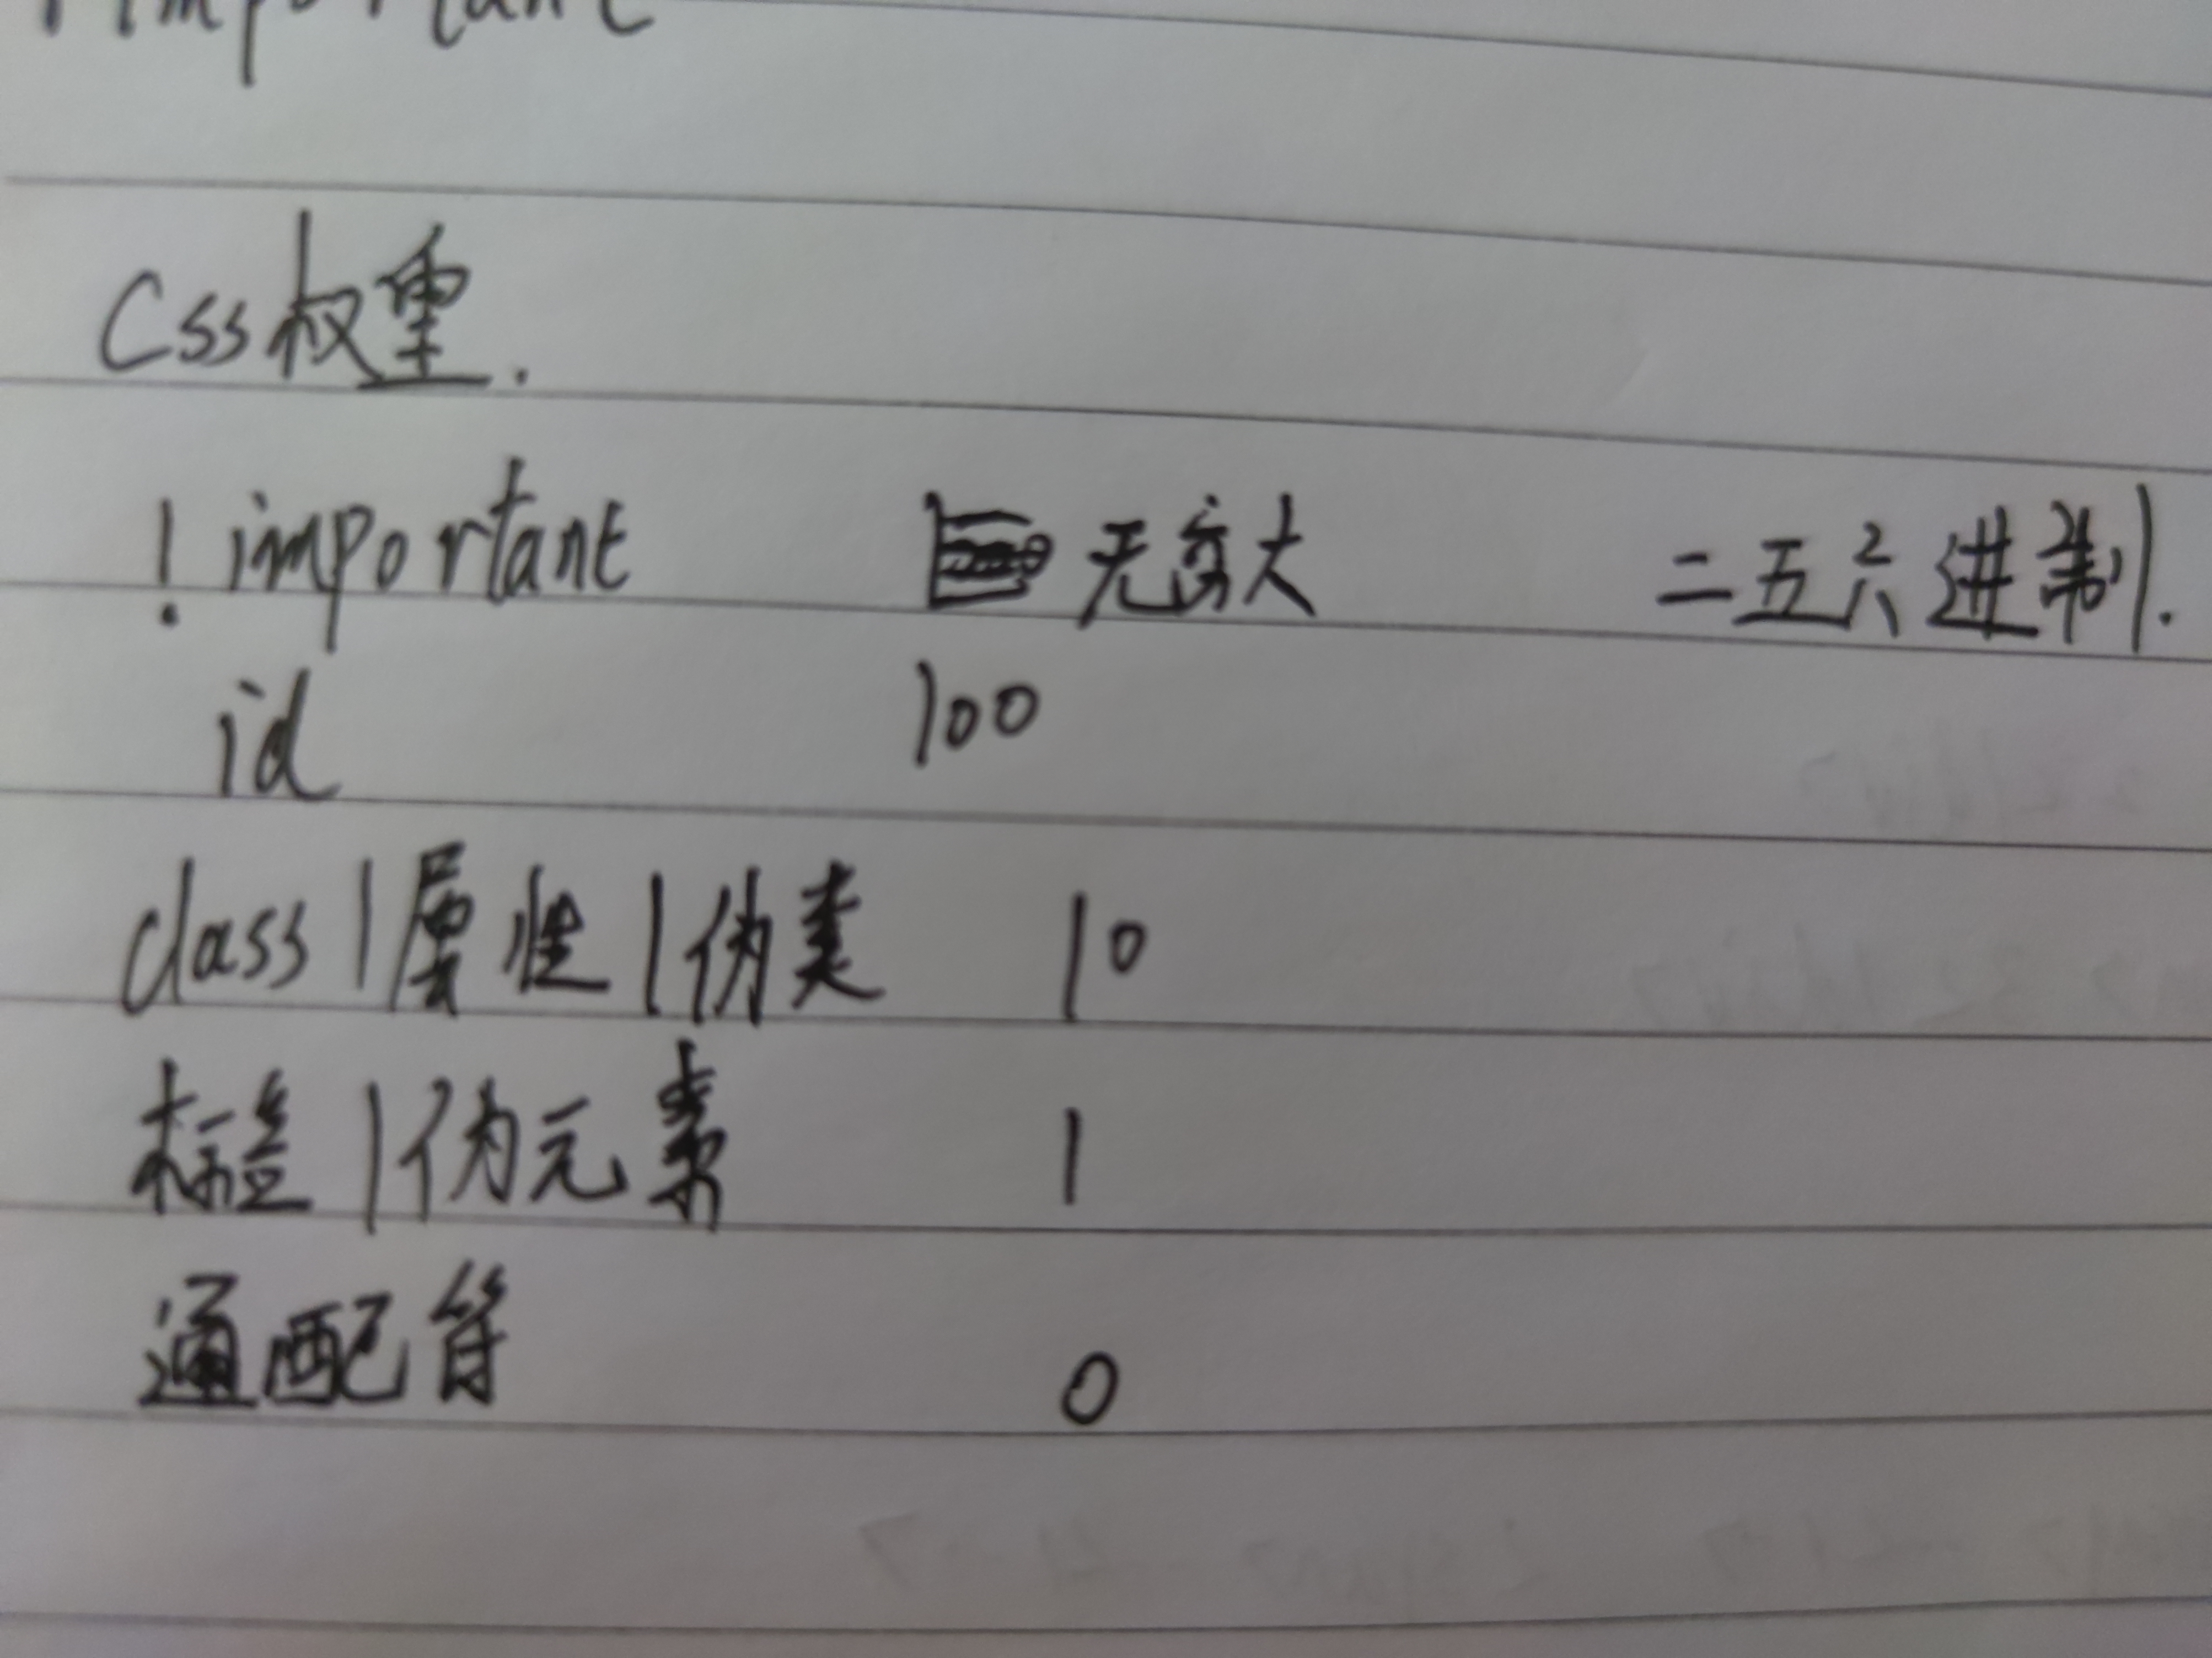 !important
Css权重.
!important 无穷大 二五六进制.
id 100
class|属性|伪类 10
标签|伪元素 1
通配符 0